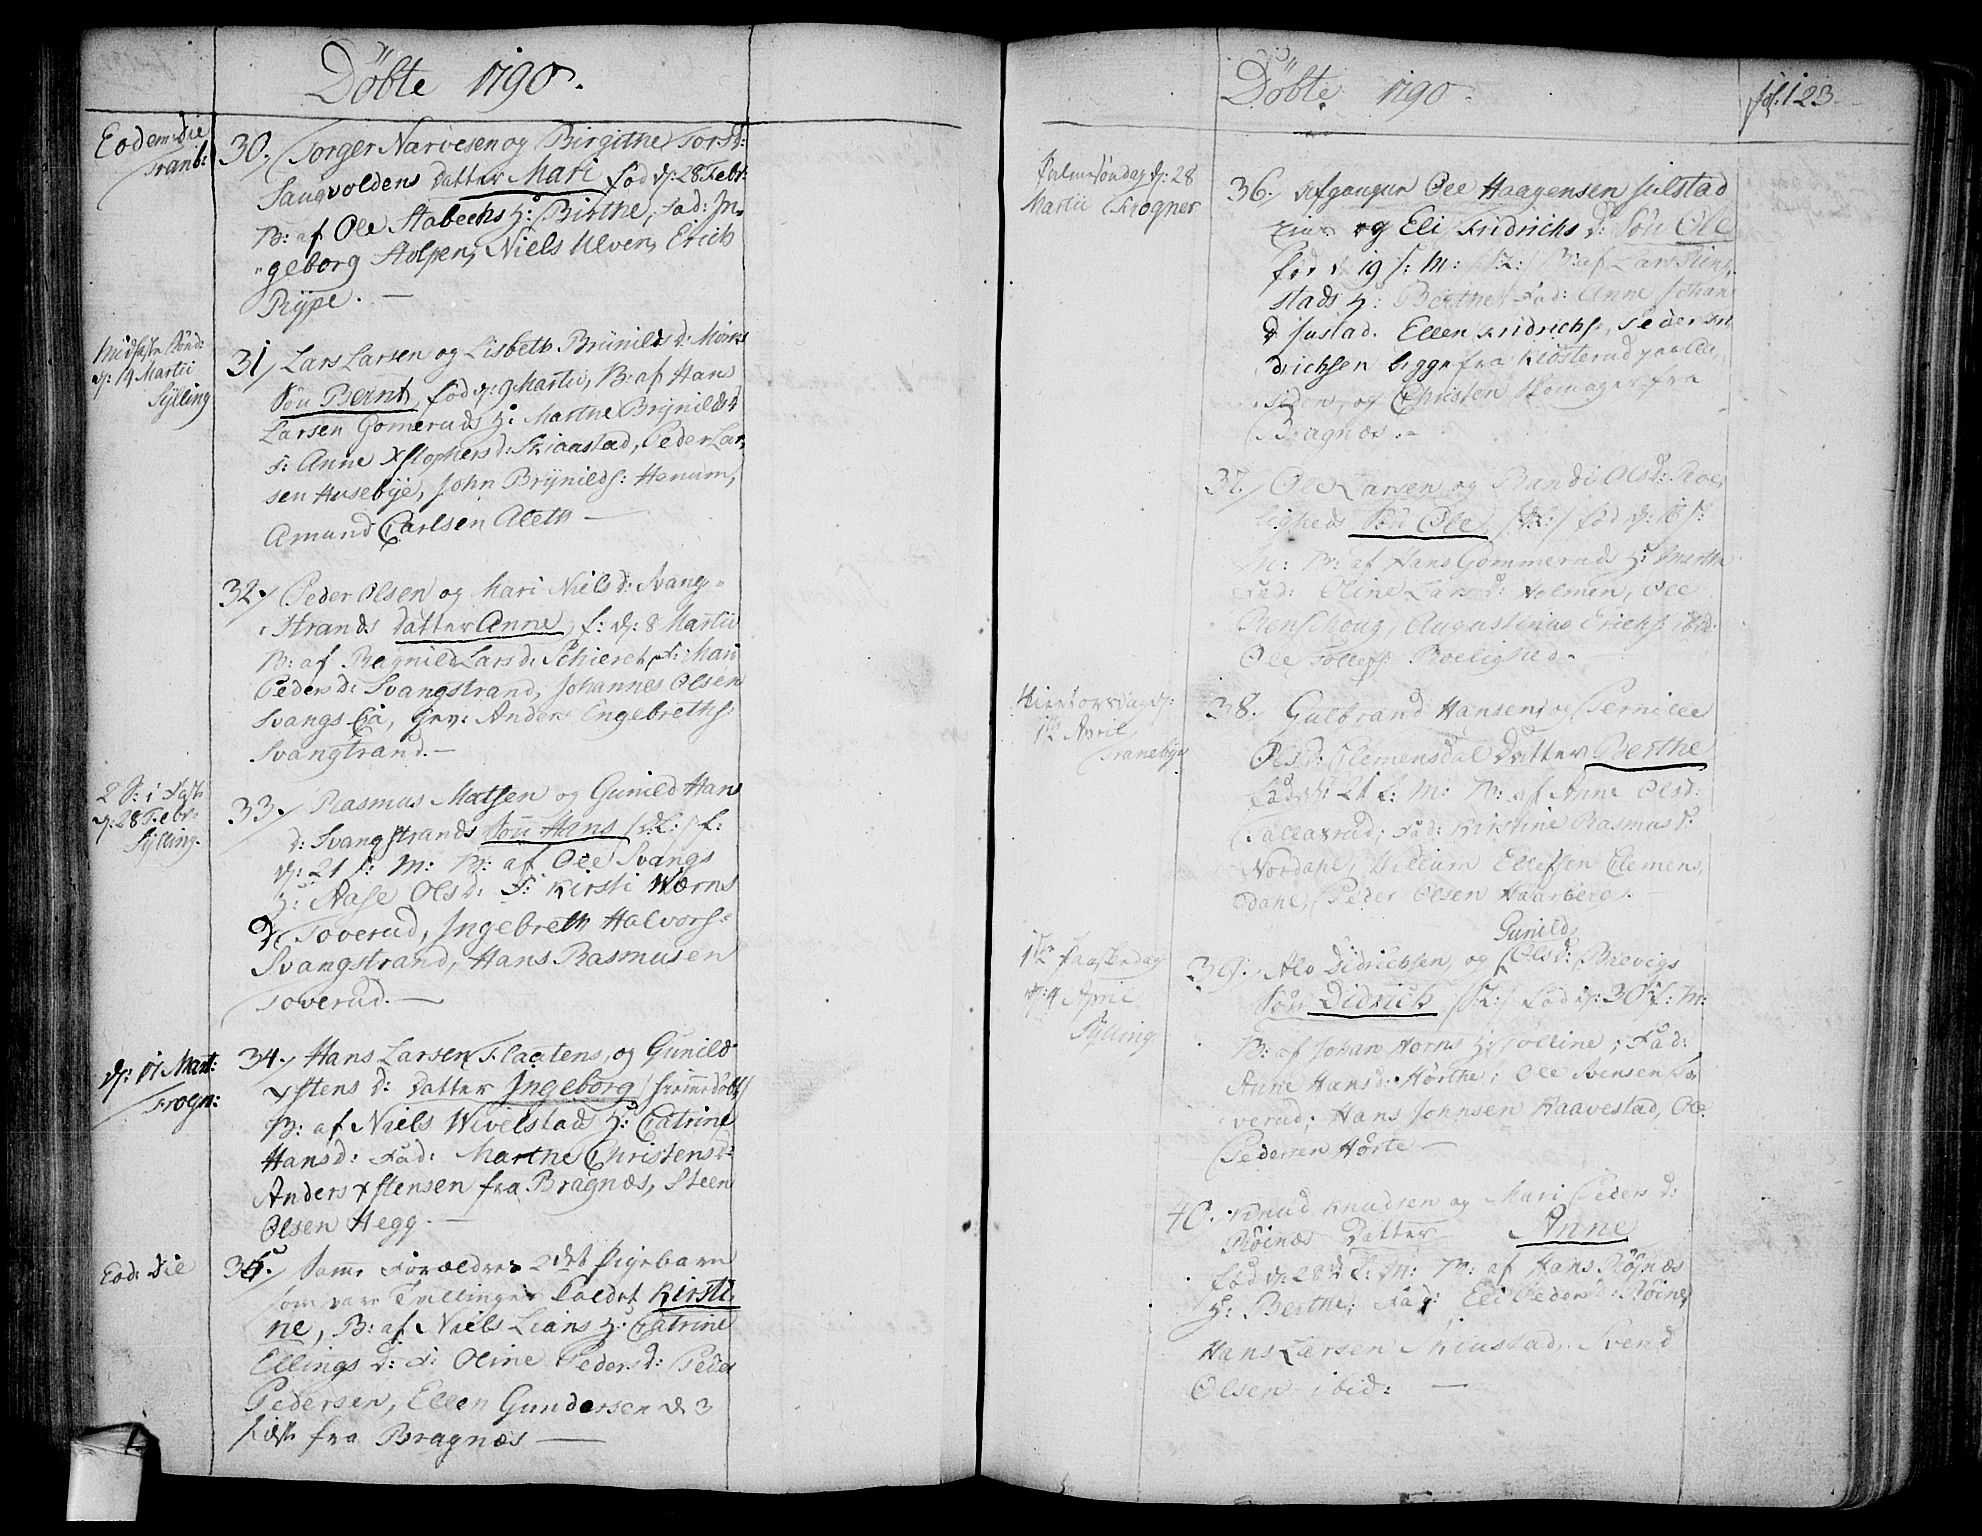 Döbte 1790.
Eodem Die
Tranb:
30. Torger Narvesen og Birgithe Torsd:
Saugvoldens Datter Mari fød d: 28 Febr:
B: af Ole Stabechs H: Birthe, Fad: In-
geborg Stolpen, Niels Ulven, Erich
Rype. —
Midfaste Sönd:
d: 14 Martii
Sylling
31 Lars Larsen og Lisbeth Brünilds d: Moens
Sön Bernt, fød d: 9 Martii, B: af Hans
Larsen Gomeruds H: Marthe Brynilds d
F: Anne Xstophers d: Skiaastad, Peder Lar-
sen Husebÿe, John Brÿnilds: Henum,
Amund Carlsen Aleth —
32 Peder Olsen og Mari Niels d: Svang-
strands Datter Anne, f: d: 8 Martii
B: af Ragnild Lars d: Schieret, F: Mari
Peders d: Svangstrand, Johannes Olsen
Svangs Eiå, Anders Engebreths:
Svangtrand. —
2 S: i Fast:
d: 28 Febr:
Sylling.
33 Rasmus Matsen og Gunild Hans
d: Svangstrands Sön Hans f:
d: 21 f: M: B: af Ole Svangs
H: Aase Ols d: F: Kirsti Wærns
d: Toverud, Ingebreth Halvors:
Svangstrand, Hans Rasmusen
Toverud. —
d: 17 Mart:
Frogn:
34. Hans Larsen Flaatens, og Gunild
Xstens d: Datter Ingeborg / hiemedöbt /
B: af Niels Wivelstads H: Catrine
Hansd: Fad: Marthe Christens d:
Anders Xstensen fra Bragnæs, Steen
Olsen Hegg. —
Eod: Die
35. Samme Forældres 2det Pigebarn
som vare Tvillinger kaldet Kirsti-
ne, B: af Niels Lians H: Catrine
Ellings d: F: Oline Peders d: Peder
Pedersen, Ellen Gundersen de 3
sidste fra Bragnæs —
Döbte 1790.
fol: 123.
Palmesöndag d: 28
Martii Frogner
36. Afgangne Ole Haagensen Julstad
og Eli Fridrichs d: Sön Ole
fød d 19 f: M: B: af Lars
stads H: Berthe Fad: Anne Johan
d Justad. Ellen Fridrichs, Peder Fri
drichsen begge fra Klosterud paa
Siden, og Christen Skomager fra
Bragnæs. —
37. Ole Larsen og Randi Olsd: Roe-
ligheds Sön Ole fød d: 16 f:
M: B: af Hans Gommerud H: Marthe
Fad: Oline Lars d: Holmen, Ole
Renschoug, Augustinus Erichs: ibid:
Ole Tollefs: Roelighed. —
Skiertorsdag d:
1ste April
Tranebye
38. Gulbrand Hansen og Pernille
Olsd: Clemensdal Datter Berthe
fød d: 21 f: M: B: af Anne Olsd:
Tallaxrud, Fad: Kirstine Rasmus d:
Nordahl, Villum Ellefsen Clemens-
dahl, Peder Olsen Haarberg. —
1ste Paaskedag
d: 4 April
Sylling
39. Alv Didrichsen, og Gunild Olsd: Brevigs
Sön Didrich fød d: 30 f: M:
B: af Johan Horns H: Tolline, Fad:
Anne Hansd: Hörthe, Ole Svensen To
verud, Hans Johnsen Haavestad, Ole
Pedersen Hörte —
40. Knud Knudsen og Mari Peders d:
Röinæs Datter Anne
fød d: 28de f: M: B: af Hans Röynæs
H: Berthe, Fad: Eli Peders d: Röines
Hans Larsen Skiustad. Svend
Olsen ibid: —